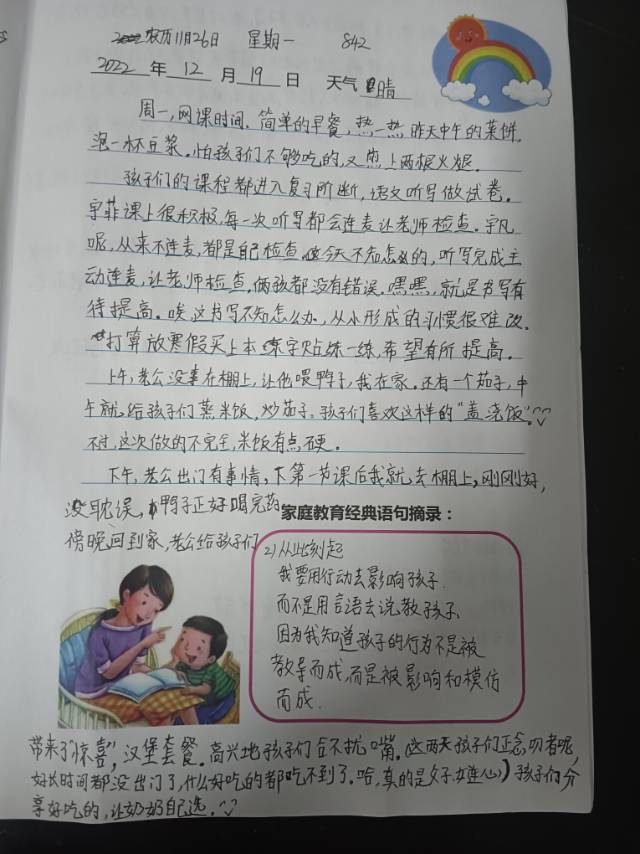 农历11月26日 星期一 842
2022年12月19日 天气晴
周一,网课时间,简单的早餐,热一热昨天中午的菜饼,
泡一杯豆浆,怕孩子们不够吃的,又煎上两根火腿。
孩子们的课程都进入复习阶断,语文听写做试卷。
宇菲课上很积极,每一次听写都会连麦让老师检查。宇凡
呢,从来不连麦,都是自己检查,今天不知怎么的,听写完成主
动连麦,让老师检查,俩孩都没有错误,嘿嘿,就是书写有
待提高。唉这书写不知怎么办,从小形成的习惯很难改。
打算放寒假买上本练字贴练一练,希望有所提高。
上午,老公没事在棚上,让他喂鸭子,我在家。还有一个茄子,中
午就给孩子们蒸米饭,炒茄子。孩子们喜欢这样的“盖浇饭”
不过这次做的不完全,米饭有点硬。
下午,老公出门有事情,下第一节课后我就去棚上,刚刚好,
没耽误,鸭子正好喝完药
家庭教育经典语句摘录:
傍晚回到家,老公给孩子们
2)从此刻起
我要用行动去影响孩子
而不是用言语去说教孩子
因为我知道孩子的行为不是被
教导而成,而是被影响和模仿
而成.
带来了“惊喜”,汉堡套餐。高兴地孩子们合不拢嘴。这两天孩子们正念叨着呢,
好长时间都没出门了,什么好吃的都吃不到了。哈,真的是父子连心)孩子们分
享好吃的,让奶奶自己选。